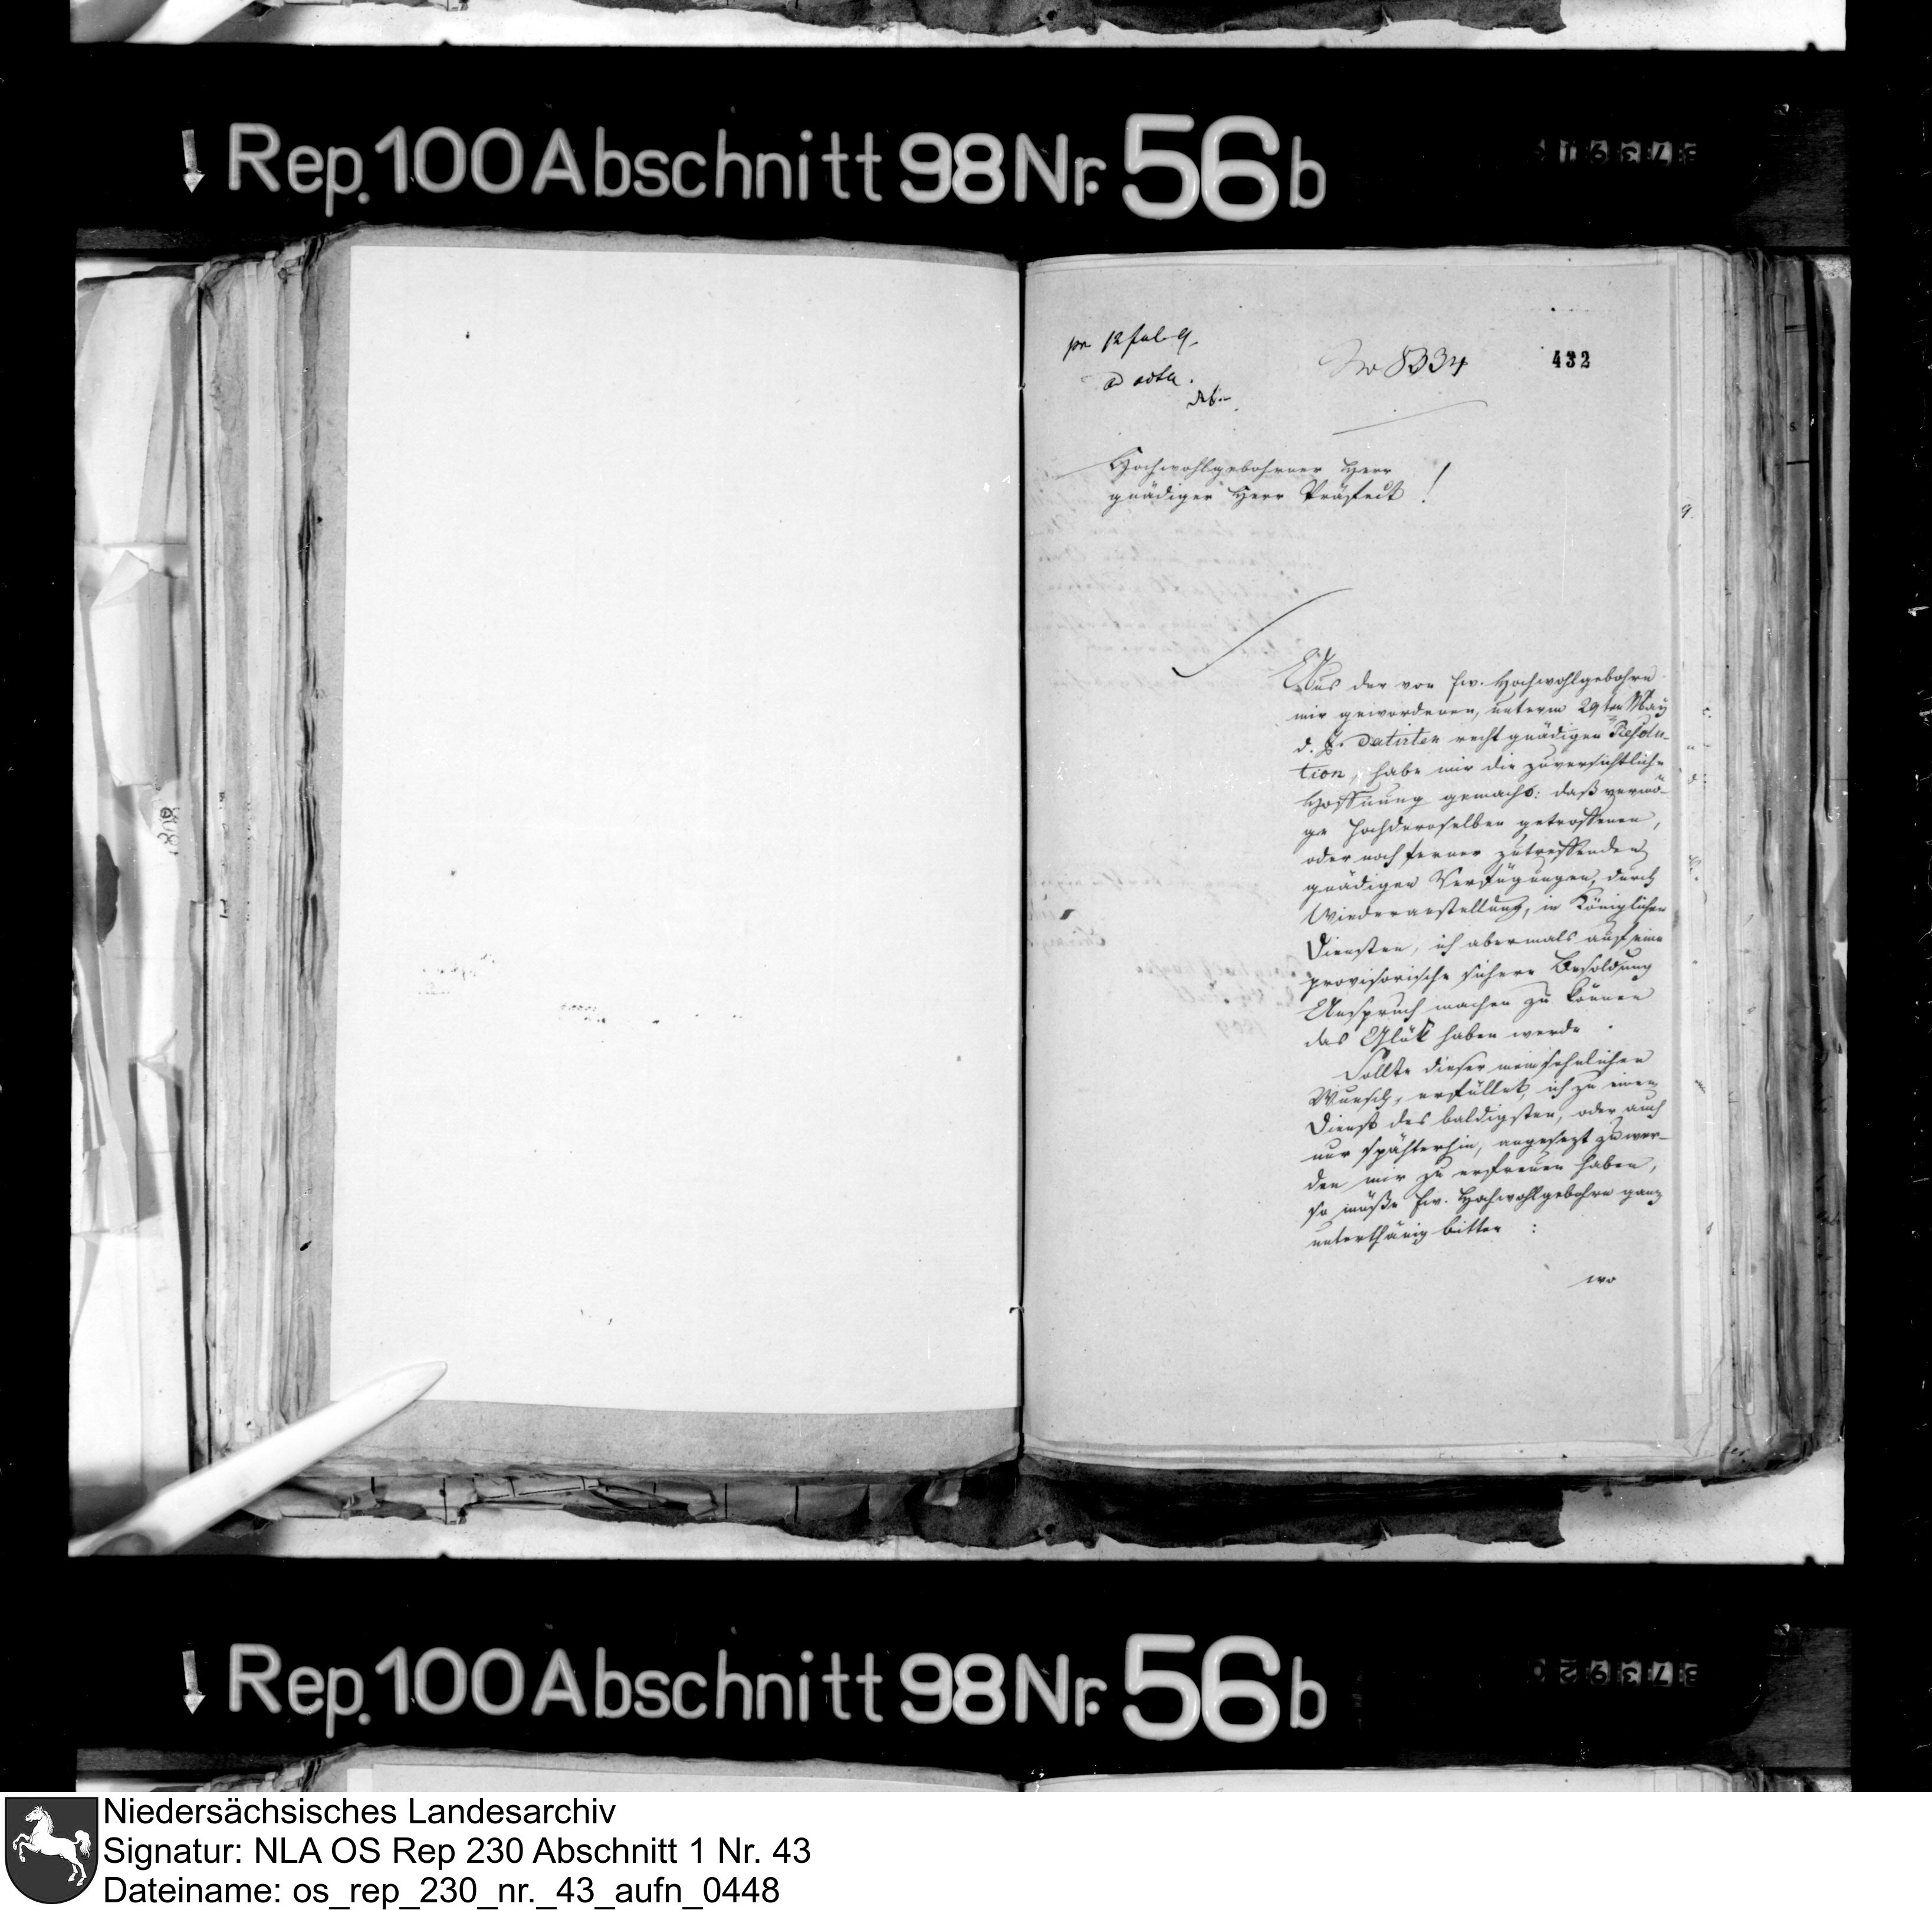 Rep. 100 Abschnitt 98 Nr. 56 b
432
No 8334
pr 12 Jul 9.
ad acta.
Hochwohlgebohrner Herr
gnädiger Herr Präfect !
Aus der von Ew. Hochwohlgebohrn
mir gewordenen, unterm 29ten May
d. J. datirten recht gnädigen Resolu-
tion, habe mir die zuversichtliche
Hoffnung gemacht: daß vermö-
ge Hochderoselben getroffenen,
oder noch ferner zutreffenden
gnädigen Verfügungen, durch
Wiederanstellung, in Königlichen
Diensten, ich abermals auf eine
provisorische sichere Besoldung
Anspruch machen zu können
das Glük haben werde.
Sollte dieser mein sehnlicher
Wunsch, erfüllet, ich zu einem
Dienst des baldigsten, oder auch
nur spähterhin, angesezt zu wer-
den mir zu erfreuen haben,
so müße Ew. Hochwohlgebohrn ganz
unterthänig bitten :
wo
1809
Rep. 100 Abschnitt 98 Nr. 56 b
Niedersächsisches Landesarchiv
Signatur: NLA OS Rep 230 Abschnitt 1 Nr. 43
Dateiname: os_rep_230_nr._43_aufn_0448